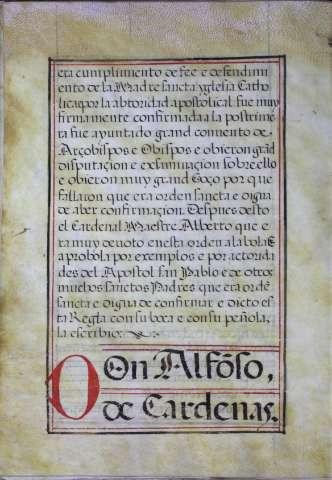 era cumplimiento de fee e defendimi
ento de la Madre sancta yglesia Catho
lica q por la abtoridad apostolical fue muy
firmamente confirmada a la postrime
ra fue ayuntado grand convento de
Arçobispos e Obispos e obieron grãd
disputaçion e examinaçion sobre ello
e obieron muy grand Gozo por que
fallaron que era orden sancta e digna
de aber confirmaçion. Despues desto
el Cardenal Maestre Alberto que e
ra muy devoto en esta orden alabola E
aprobola por exemplos e por actorida
des del Apostol san Pablo e de otros
muchos sanctos Padres que era ordẽ
sancta e digna de confirmar e dicto es
ta Regla con su boca e con su peñola
la escribio:
DOn Alfõso,
de Cardenas.